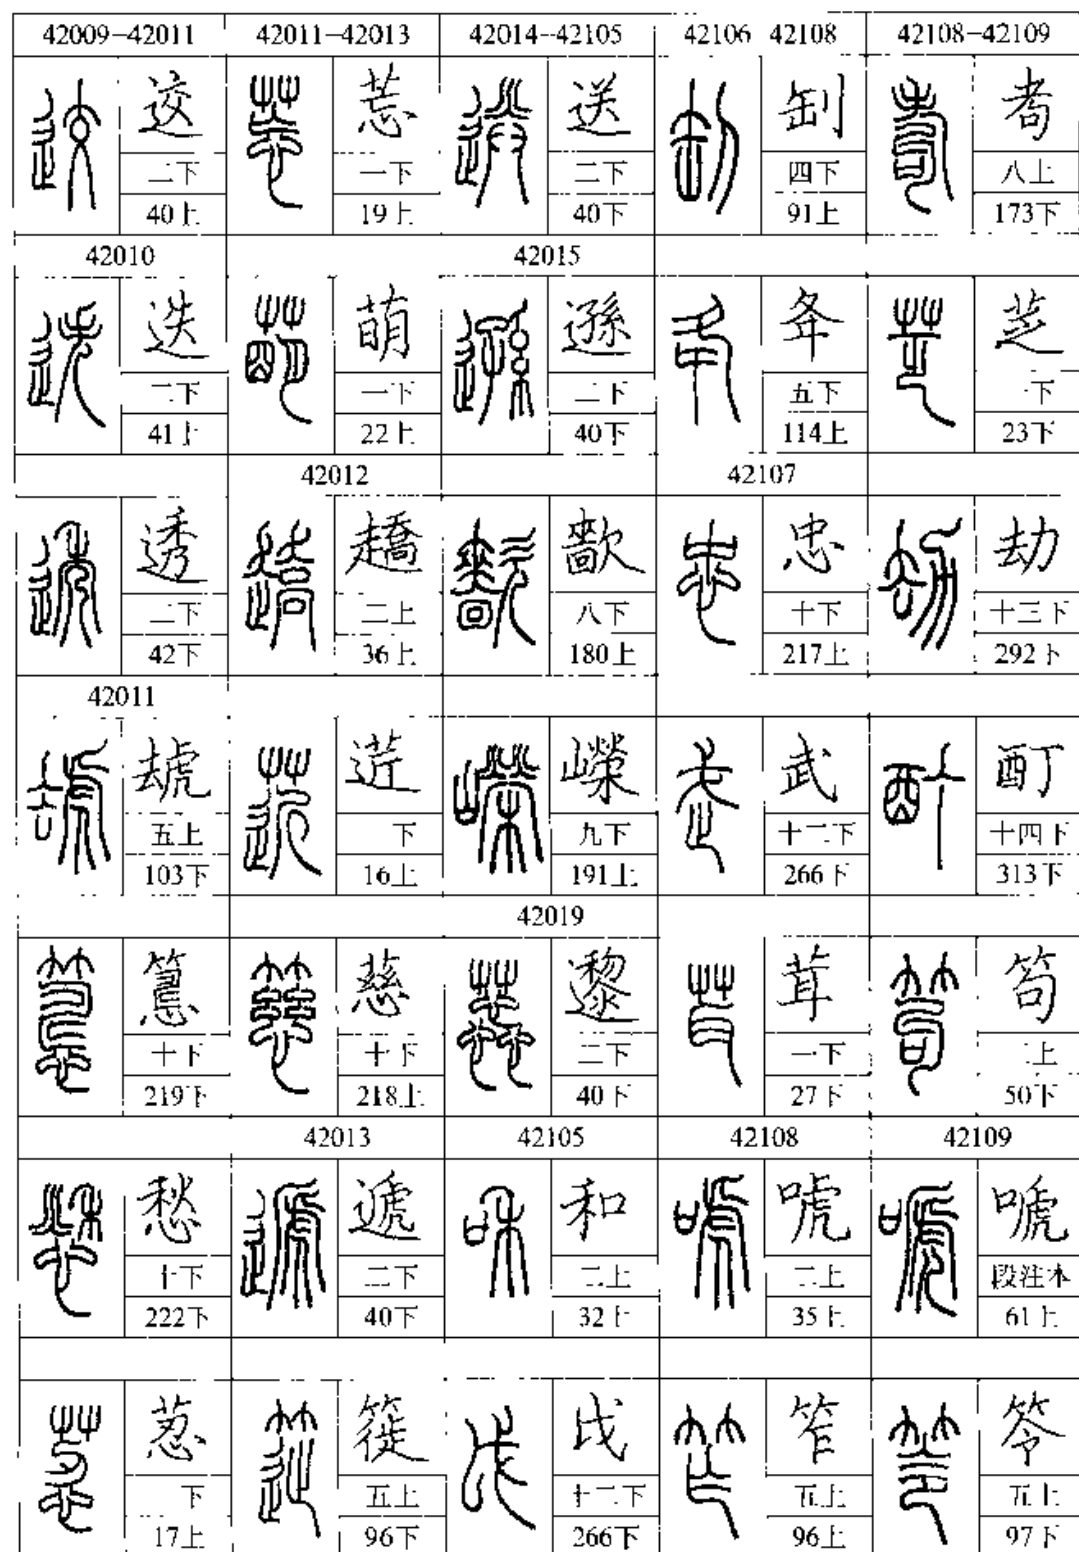 42009–42011
迒
二下
40上
42010
迭
二下
41上
透
二下
42下
42011
䖈
五上
103下
十下
219下
愁
十下
222下
葱
下
17上
42011–42013
莣
一下
19上
萌
一下
22上
42012
趫
二上
36上
下
16上
慈
十下
218上
42013
遞
二下
40下
簁
五上
96下
42014–42105
送
二下
40下
42015
遜
二下
40下
歗
八下
180上
嶸
九下
191上
42019
邌
二下
40下
42105
和
二上
32上
戉
十二下
266下
42106 42108
四下
91上
夅
五下
114上
42107
忠
十下
217上
武
十二下
266下
茸
一下
27下
42108
唬
二上
35上
笮
五上
96上
42108–42109
耇
八上
173下
芝
下
23下
劫
十三下
292下
酊
十四下
313下
42109
笱
上
50下
嗁
段注本
61上
笭
五上
97下